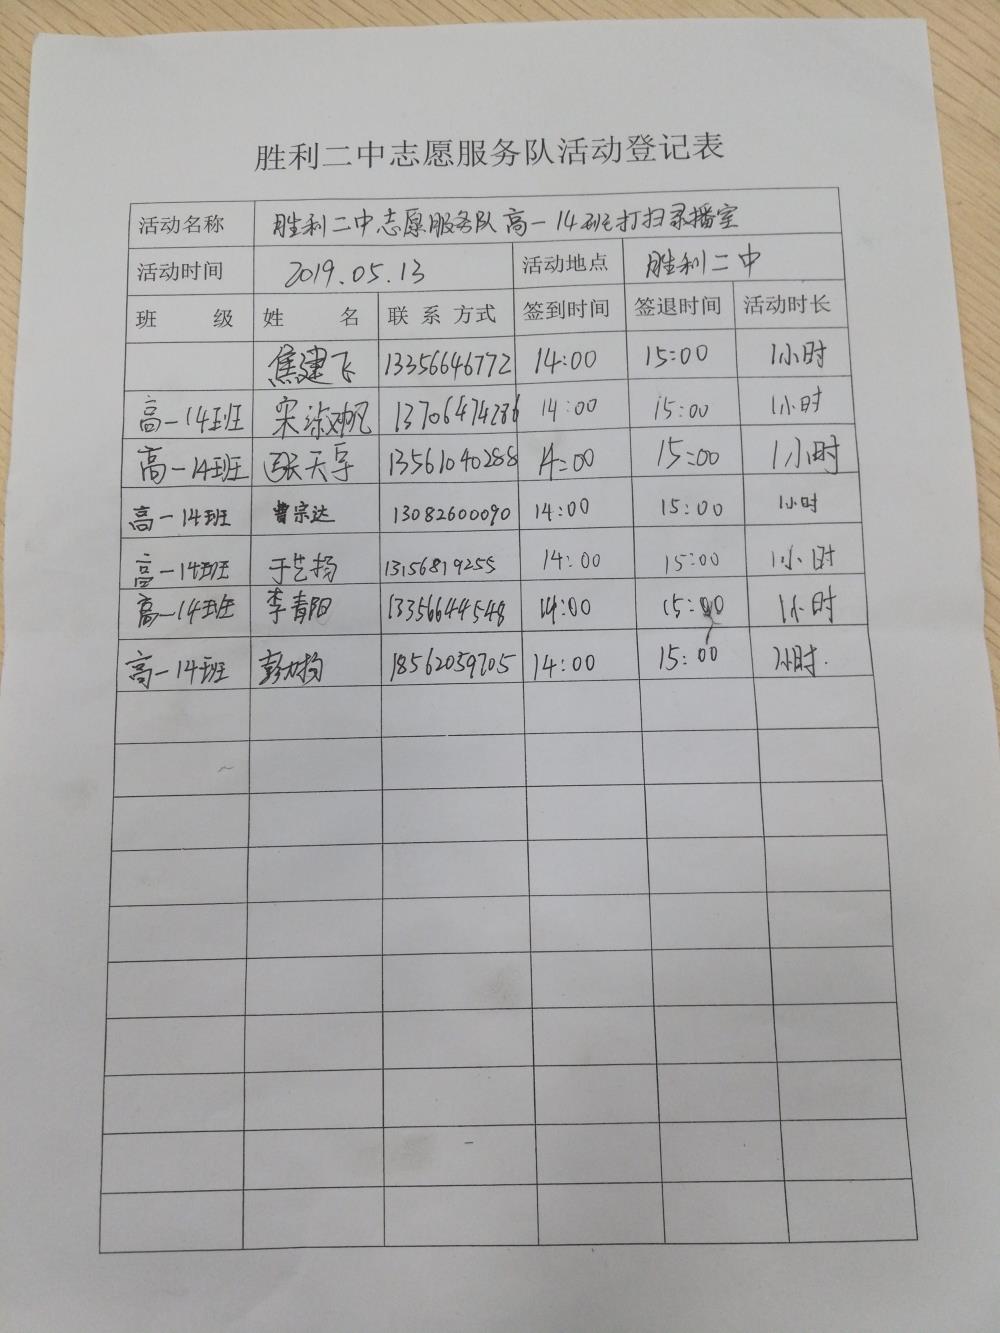 胜利二中志愿服务队活动登记表
活动名称 胜利二中志愿服务队高一14班打扫录播室
活动时间 2019.05.13 活动地点 胜利二中
班 级 姓 名 联系方式 签到时间 签退时间 活动时长
焦建飞 13356646772 14:00 15:00 1小时
高一14班 宋 13706474286 14:00 15:00 1小时
高一14班 张天宇 13561040288 14:00 15:00 1小时
高一14班 曹宗达 13082600090 14:00 15:00 1小时
高一14班 于艺扬 13156819255 14:00 15:00 1小时
高一14班 李青阳 13356644548 14:00 15:00 1小时
高一14班 彭 18562059705 14:00 15:00 1小时.